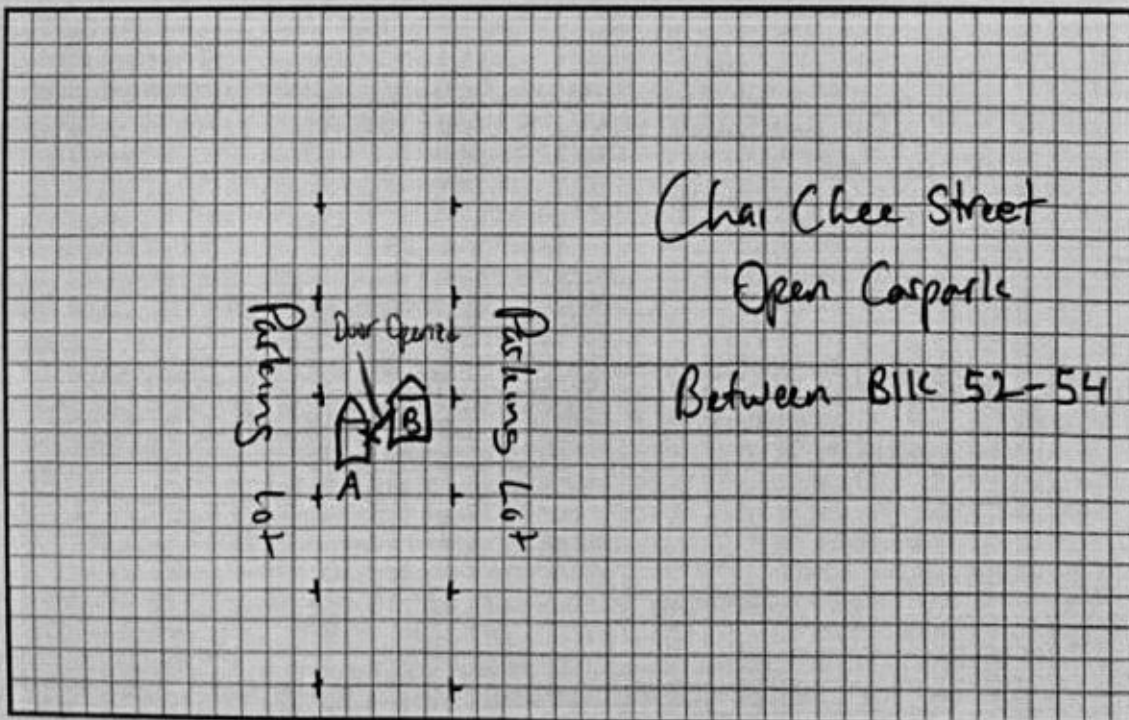 Chai Chee Street
Open Carpark
Between Blk 52-54
Parking Lot
Door Opened
Parking Lot
A
B